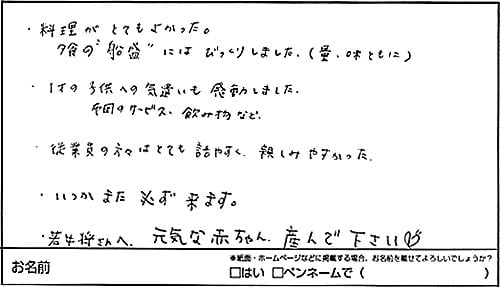 ・料理がとてもよかった。
夕食の"船盛"にはびっくりしました。(量、味ともに)
・1才の子供への気遣いも感動しました。
のサービス、飲み物など。
・従業員の方々はとても話やすく、親しみやすかった。
・いつかまた必ず来ます。
・若女将さんへ、元気な赤ちゃん、産んで下さい♡
お名前
※紙面・ホームページなどに掲載する場合、お名前を載せてよろしいでしょうか?
□はい □ペンネームで( )